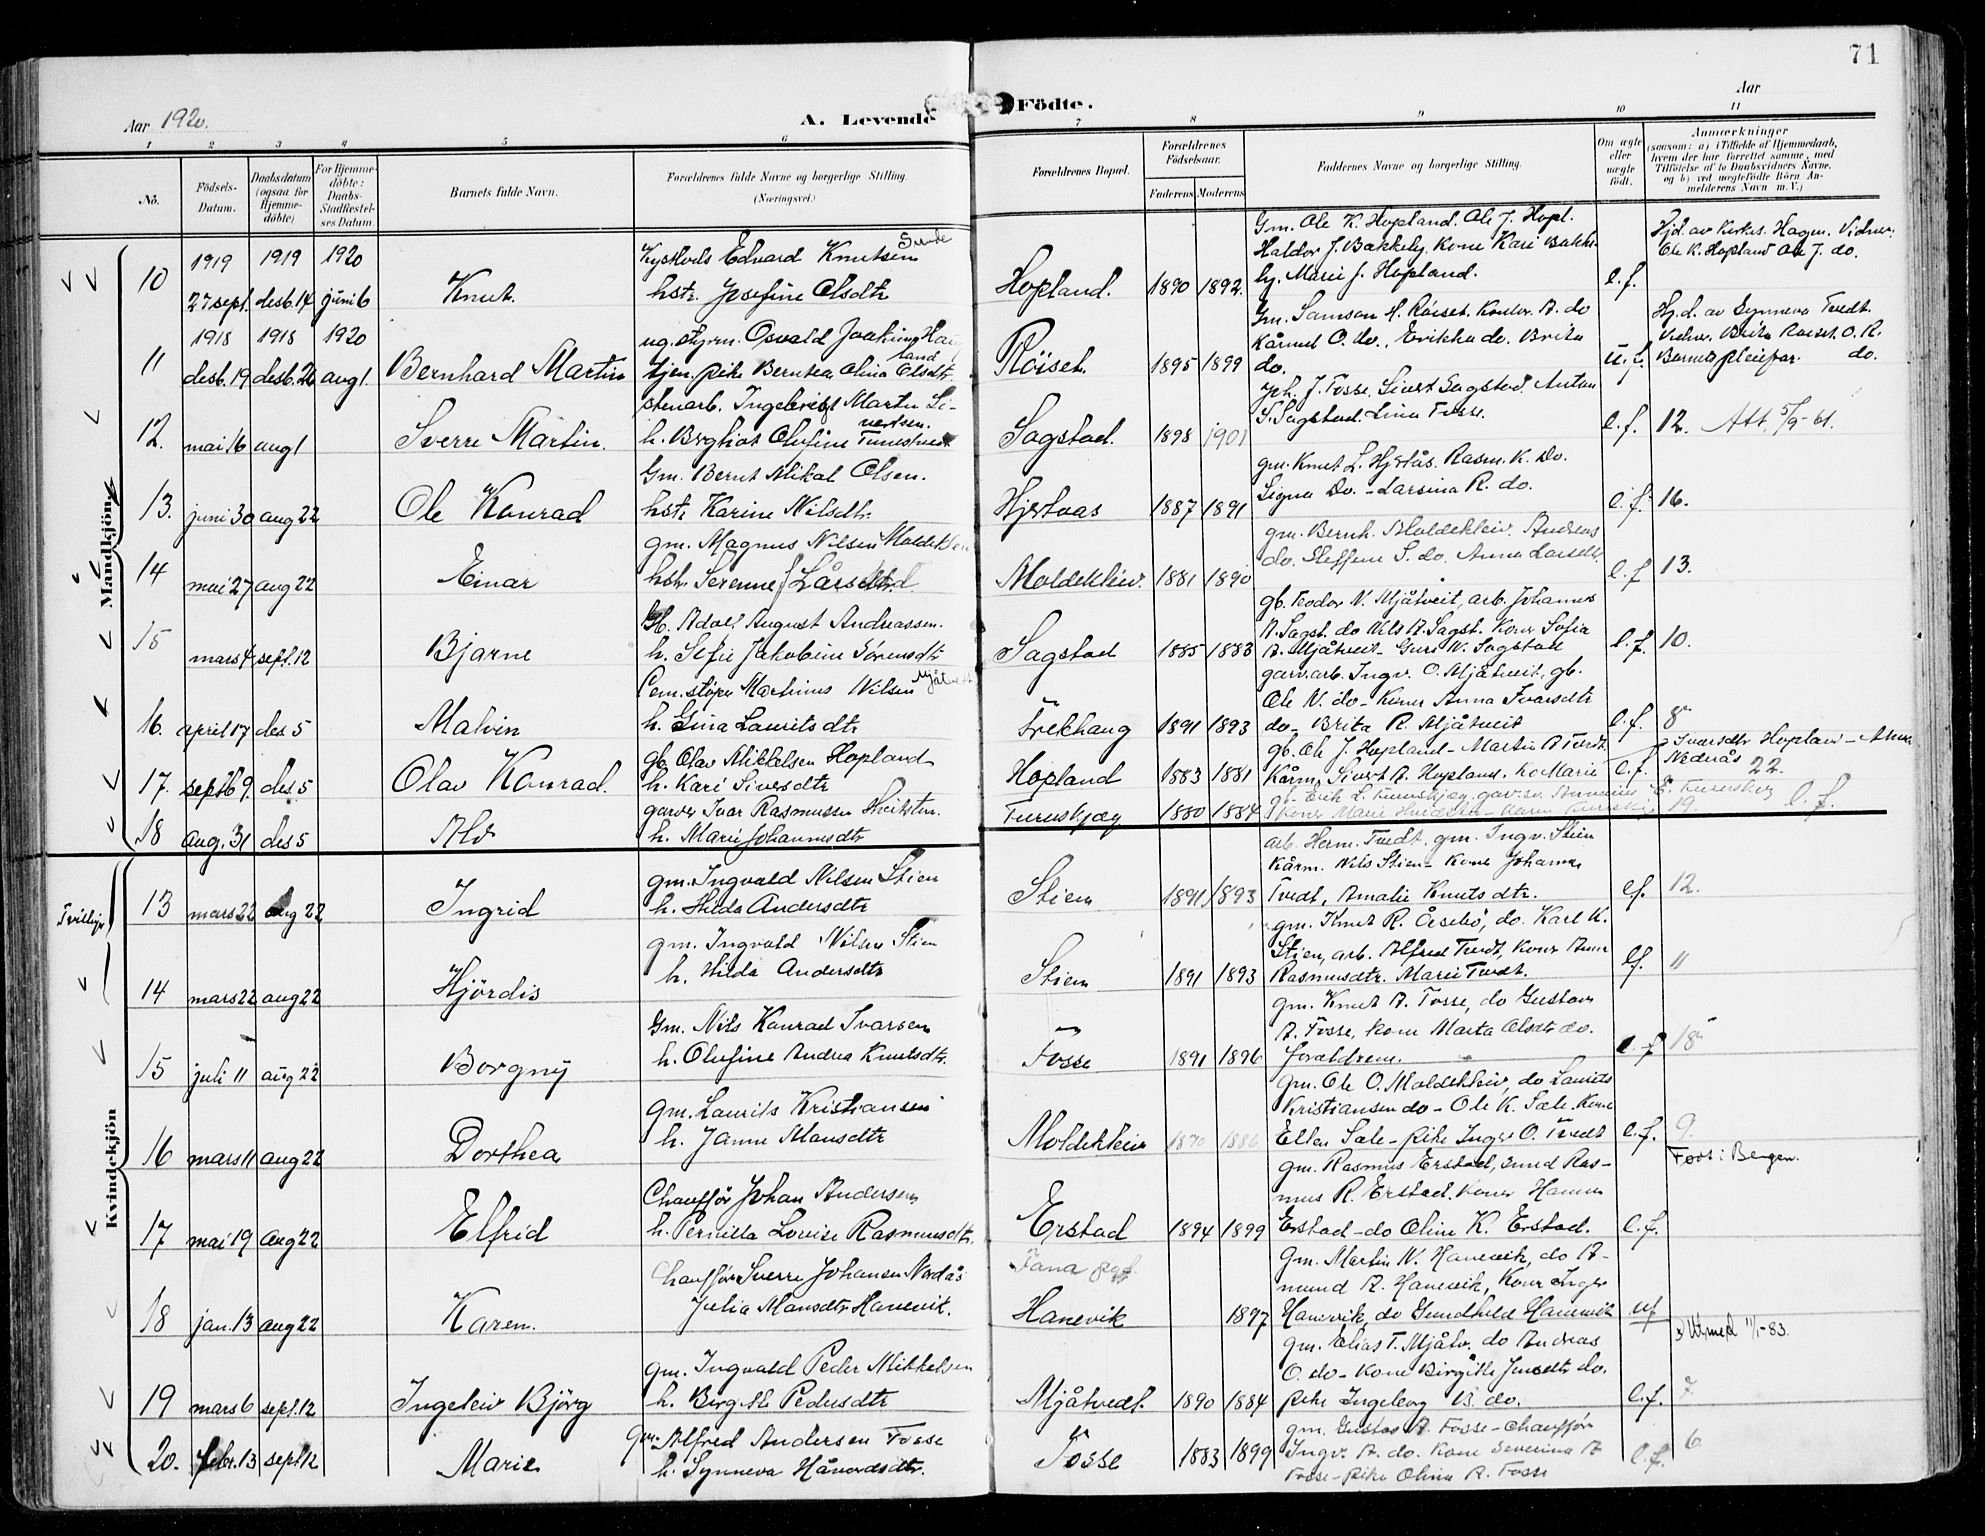 71
Aar 1920.
A. Levende Födte.
Aar
1 2 3 4 5 6 7 8 9 10 11
No.
Födsels-Datum.
Daabsdatum (ogsaa for Hjemmedöbte)
For Hjemmedöbte: Daabs-Stadfestelses Datum
Barnets fulde Navn.
Forældrenes fulde Navne og borgerlige Stilling. (Næringsvei.)
Forældrenes Bopæl.
Forældrenes Födselsaar.
Faderens Moderens
Faddernes Navne og borgerlige Stilling.
Om ægte eller uægte födt.
Anmærkninger
(saasom: a) i Tilfælde af Hjemmedaab, hvem der har forrettet samme, med Tilföielse af to Daabsvidners Navne. og b) ved uægtefödte Börn Anmelderens Navn m. V.)
Mandkjön
10 1919 27 sept. 1919 desb. 14 1920 juni 6
Knut.
Edvard Knutsen Sunde
hstr. Josefine Olsdtr
Hopland. 1890 1892.
Gm. Ole K. Hopland. Ole J. Hopl.
Haldor J. Bakkely, Kone Kari Bakke-
ly. Marie J. Hopland.
e.f.
Hjd. av Kirkes. Hagen. Vidner.
Ole K. Hopland Ole J. do.
11 1918 desb. 19 1918 desb. 26 1920 aug 1.
Bernhard Martin
ug. styrm. Osvald Joakim Haugland
tjen. pike Berntea Olina Olsdtr
Röiset. 1895 1899
Gm. Samson H. Röiset. Do
O. do. Erikka do. Brita
do.
u.f.
Hj.d. av Synneva Tvedt.
Vidner. Brita Röiset. O. R. do.
Barnets pleiefar.
12. mai 16 aug 1
Sverre Martin.
stenarb. Martin Sivertsen.
h. Bergliot Olufine
Sagstad. 1898 1901
Joh. J. Fosse, Sivert Sagstad. Anton
S. Sagstad. Lina Fosse.
e.f. 12. Att. 5/9-61.
13. juni 30 aug 22
Ole Konrad
Gm. Bernt Mikal Olsen.
hstr Karine Nilsdtr.
Hjertaas 1887 1891
gm. Knut L. Hjertås. Rasm. K. Do.
Signa Do. - Larsina R. do.
e.f. 16.
14 mai 27 aug 22
Einar
gm. Magnus Nilsen Moldeklev
hstr Serenne Larsdtr.
Moldekleiv. 1881 1890
gm. Bernh. Moldekleiv. Andreas
do. Steffine S. do. Anna Larsdtr.
e.f 13.
15 mars 4 sept. 12
Bjarne
Gb. Adolf August Andreassen.
h. Sofie Jakobine Sörensdtr
Sagstad 1885 1883
gb. Teodor N. Mjåtveit, arb. Johannes
A. Sagst. do Nils A. Sagst. Kone Sofia
A. Mjåtveit. Guro N. Sagstad
e.f. 10.
16. april 17 des 5
Malvin
Cem. stöper Martinus Nilsen Mjåtveit
h. Gina Lauritsdtr
Frekhaug 1891 1893
garv.arb. Ingv. O. Mjåtveit, gb.
Ole N. do - Kone Anna Ivarsdtr
do - Brita R. Mjåtveit
e.f. 8
17. sept 9. des 5
Olav Konrad.
gb. Olav Mikkelsen Hopland
h. Kari Siversdtr
Hopland 1883 1881
gb. Ole J. Hopland - Martin A Tvedt.
Kårm. Sivert A. Hopland. Ko Marie
e.f.
Ivarsdtr Hopland - Anna
Nedrås 22.
18 aug. 31 des 5
Alv
garver Ivar Rasmussen
h. Marie Johannesdtr
Fureskjæg 1880 1884
gb. Erik L. Fureskjæg
Kone Marie
19. e.f.
Kvindekjön
Tvillinger
13 mars 22 aug 22
Ingrid
gm. Ingvald Nilsen Stien
h. Hilda Andersdtr
Stien 1891 1893
arb. Herm. Tvedt. gm. Ingv. Stien
Kårm. Nils Stien - Kone Johanna
Tvedt, Amalie Knutsdtr.
ef. 12.
14 mars 22 aug 22
Hjördis
gm. Ingvald Nilsen Stien
h. Hilda Andersdtr
Stien 1891 1893
gm. Knut R. do. Karl K.
Stien, arb. Alfred Tvedt, Kone Anna
Rasmusdtr. Marie Tvedt.
ef. 11
15 juli 11 aug 22
Borgny
Gm. Nils Konrad Ivarsen
h. Olufine Andrea Knutsdtr.
Fosse 1891 1896
gm. Knut A. Fosse, do Gustav
A. Fosse, kone Marta Olsdtr do.
forældrene.
e.f 18
16 mars 11 aug 22
Dorthea
gm. Laurits Kristiansen
h. Janne Monsdtr
Moldekleiv 1870 1886
gm. Ole O. Moldekleiv, do Laurits
Kristiansen do - Ole K. Sæle. Kone
Ellen Sæle - pike Inger O. Tvedt
e.f. 9.
Föds i Bergen.
17 mai 19 aug 22
Elfrid
Chaufför Johan Andersen
h. Pernilla Lovise Rasmusdtr.
Erstad 1894 1899
gm. Rasmus Erstad, smed Ras-
mus R. Erstad. Kone Hanna
Erstad - do Oline K. Erstad.
e.f.
18 jan. 13 aug 22
Karen.
Chauffør Sverre Johansen Nordås
Julia Monsdtr Hanevik.
Fana pgf.
Hanevik 1897
Gm. Martin N. Hanevik, do A-
mund A. Hanevik, Kone Inger
Hanevik, do Gundhild Hanevik
uf
Utmed 11/1-83.
19 mars 6 sept. 12
Ingeleiv Björg
gm. Ingvald Peder Mikkelsen
h. Birgitte Pedersdtr
Mjåtvedt. 1890 1884
gm. Elias T. Mjåtv. do Andreas
O. do - Kone Birgitte Jensdtr do.
pike Ingeborg do.
e.f. 7
20. febr. 13 sept 12
Marie
gm. Alfred Andersen Fosse
h. Synneva Håvardsdtr.
Fosse 1883 1899
gm. Gustav A. Fosse - Chauffør
Ingv. A. do. Kone Severina A
Fosse - pike Olina A. Fosse
e.f. 6